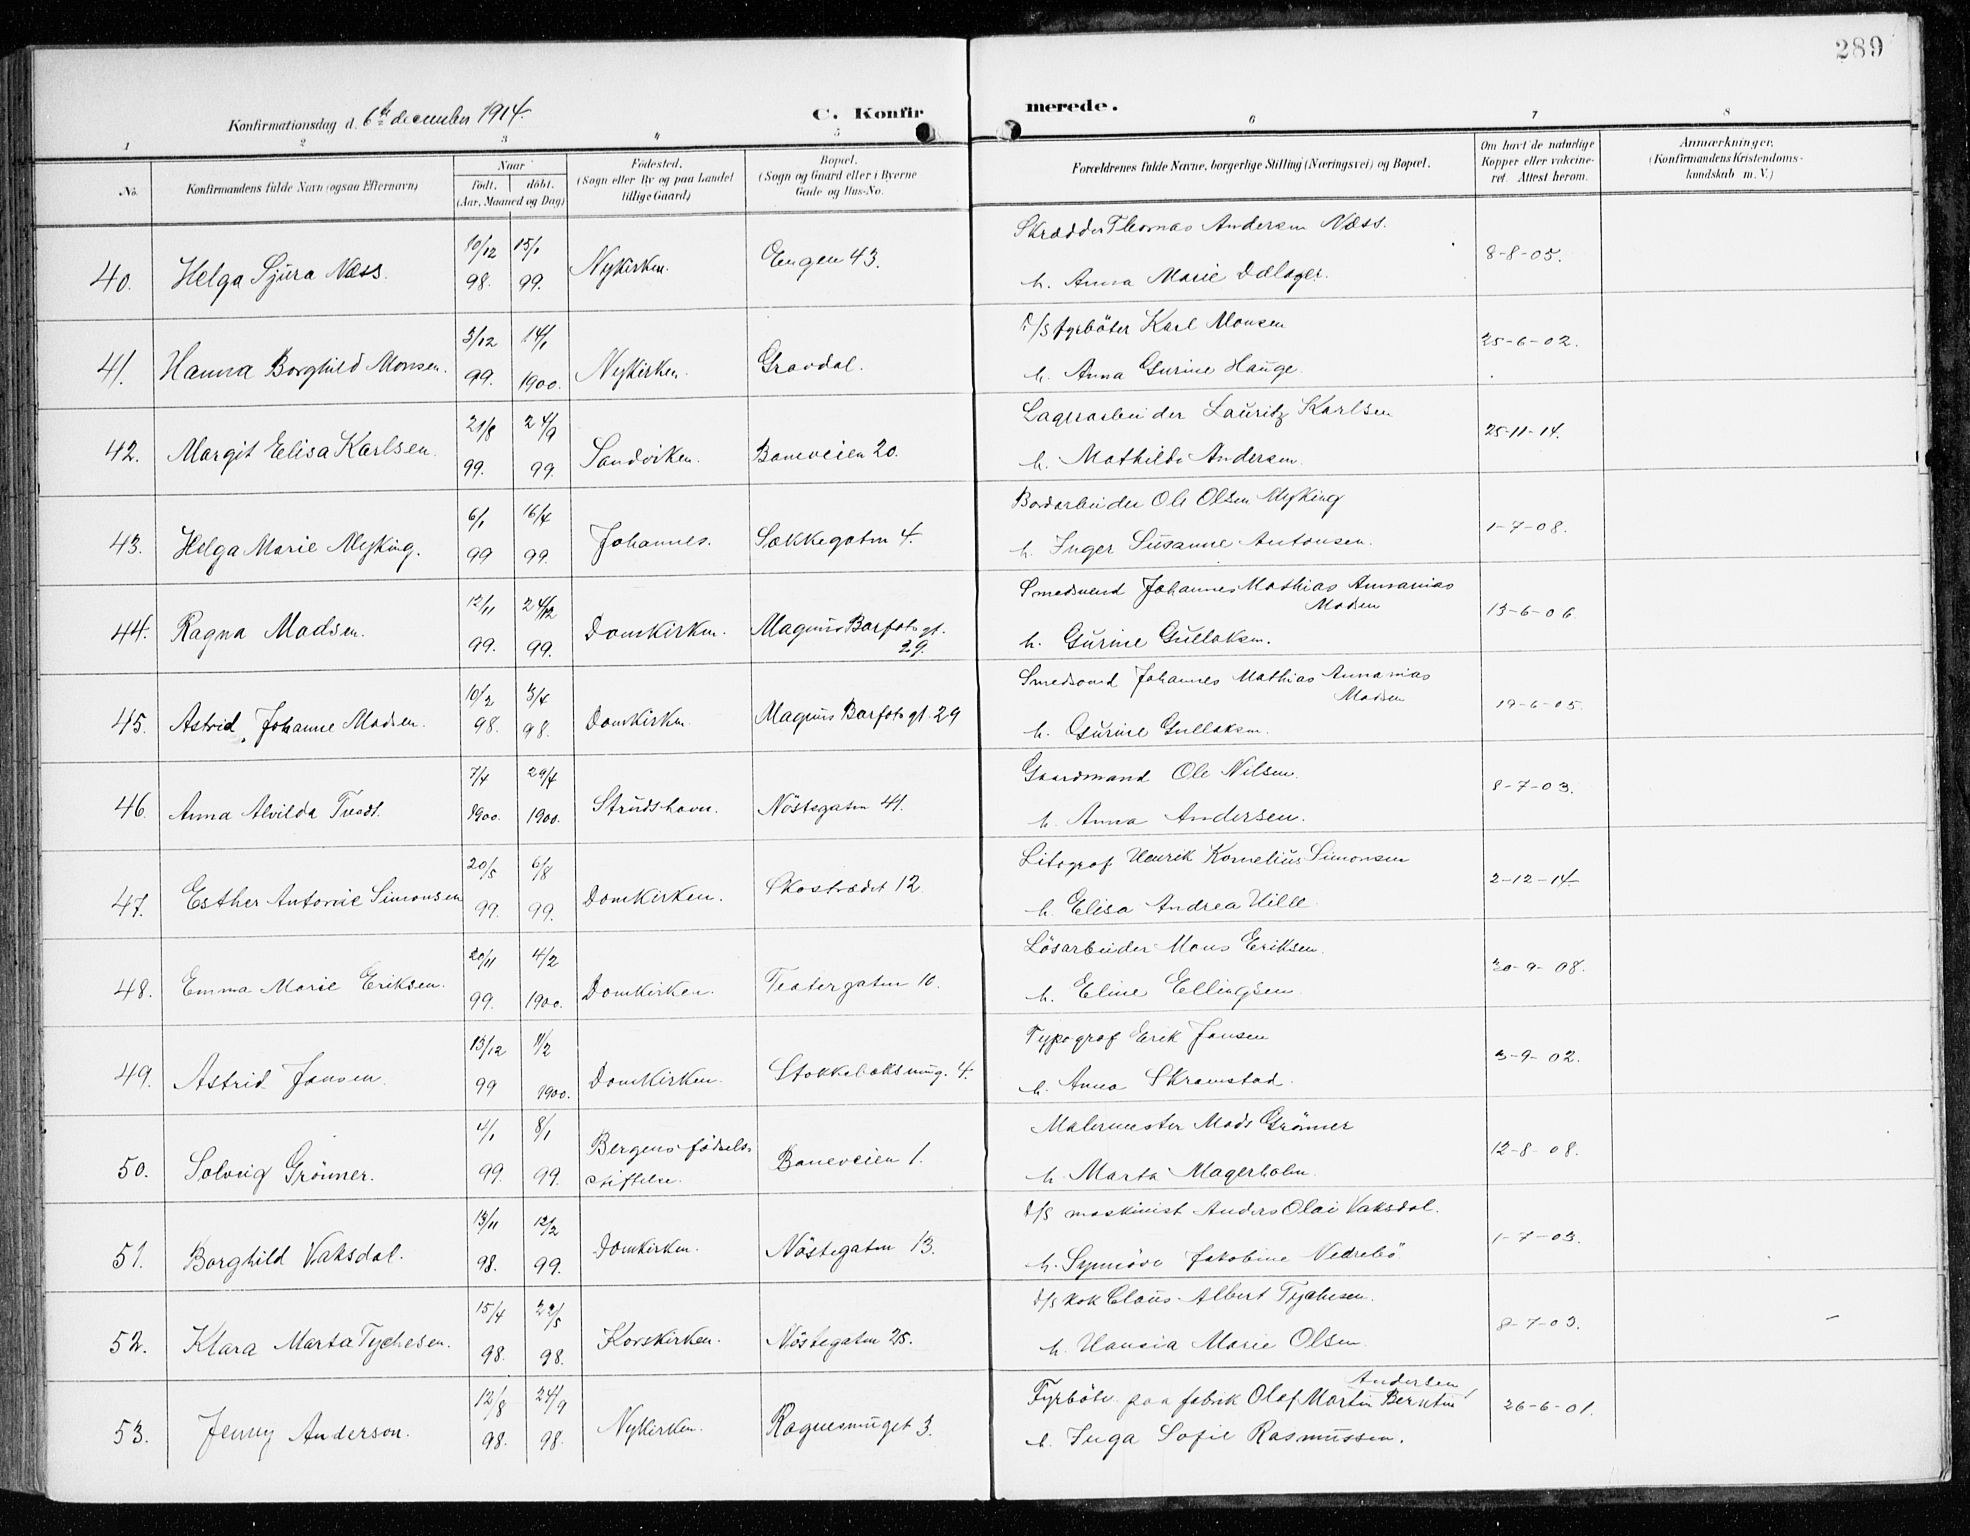 289
Konfirmationsdag d. 6te december 1914.
C. Konfirmerede.
1 2 3 4 5 6 7 8
No.
Konfirmandens fulde Navn (ogsaa Efternavn)
Naar
født. døbt.
(Aar, Maaned og Dag)
Fødested.
(Sogn eller By og paa Landet
tillige Gaard)
Bopæl.
(Sogn og Gaard eller i Byerne
Gade og Hus-No.
Forældrenes fulde Navne, borgerlige Stilling (Næringsvei) og Bopæl.
Om havt de naturlige
Kopper eller vakcine-
ret. Attest herom.
Anmærkninger.
(Konfirmandens Kristendoms-
kundskab m. V.)
40. Helga Sjura Næss. 10/12 98. 15/1 99. Nykirken. Engen 43. Skrædder Thomas Andersen Næss.
h. Anna Marie Dalager. 8-8-05.
41. Hanna Borghild Monsen. 3/12 99. 14/1 1900. Nykirken. Gravdal. D/S fyrböter Karl Monsen
h. Anna Gurine Hauge. 25-6-02.
42. Margit Elisa Karlsen. 21/8 99. 24/9 99. Sandviken. Baneveien 20. Lagerarbeider Lauritz Karlsen
h. Mathilde Andersen. 25-11-14.
43. Helga Marie Myking. 6/1 99 16/4 99. Johannes. Søkkegaten 4. Bordarbeider Ole Olsen Myking
h. Inger Susanne Antonsen. 1-7-08.
44. Ragna Madsen. 12/11 99. 24/12 99. Domkirken. Magnus Barfots gt. 29. Smedsvend Johannes Mathias Annanias Madsen
h. Gurine Gullaksen. 13-6-06
45. Astrid Johanne Madsen. 10/2 98. 3/4 98. Domkirken Magnus Barfots gt. 29 Smedsvend Johannes Mathias Annanias Madsen
h. Gurine Gullaksen. 19-6-05.
46. Anna Alvilda Tvedt. 7/4 1900. 29/4 1900. Strudshavn. Nöstegaten 41. Gaardmand Ole Nilsen.
h. Anna Andersen. 8-7-03.
47. Esther Antonie Simonsen 20/5 99. 6/8 99. Domkirken. Skostrædet 12. Litograf Henrik Kornelius Simonsen
h. Elisa Andrea Hille. 2-12-14
48. Emma Marie Eriksen. 20/11 99. 4/2 1900. Domkirken. Teatergaten 10. Lösarbeider Mons Eriksen.
h. Eline Ellingsen. 30-9-08.
49. Astrid Jansen. 13/12 99 11/2 1900. Domkirken. Stokkebaksmug. 4. Typograf Erik Jansen
h. Anna Skramstad. 3-9-02.
50. Solveig Grönner. 4/1 99. 8/1 99. Bergens födsels-
stiftelse. Baneveien 1. Malermester Mads Grönner
h. Marta Magerholm. 12-8-08.
51. Borghild Vaksdal. 13/11 98. 12/2 99. Domkirken. Nöstegaten 13. D/S maskinist Anders Olai Vaksdal.
h. Synnöve Jakobine Vedrebö 1-7-03.
52. Klara Marta Tychesen. 15/4 98. 22/5 98. Korskirken. Nöstegaten 25. D/S kok Claus Albert Tychesen.
h. Hansia Marie Olsen. 8-7-03.
53. Jenny Anderson. 12/8 98. 24/9 98. Nykirken. Ragnesmuget 3. Fyrböter paa fabrik Olaf Martin Berntin Andersen
h. Inga Sofie Rasmussen. 26-6-01.